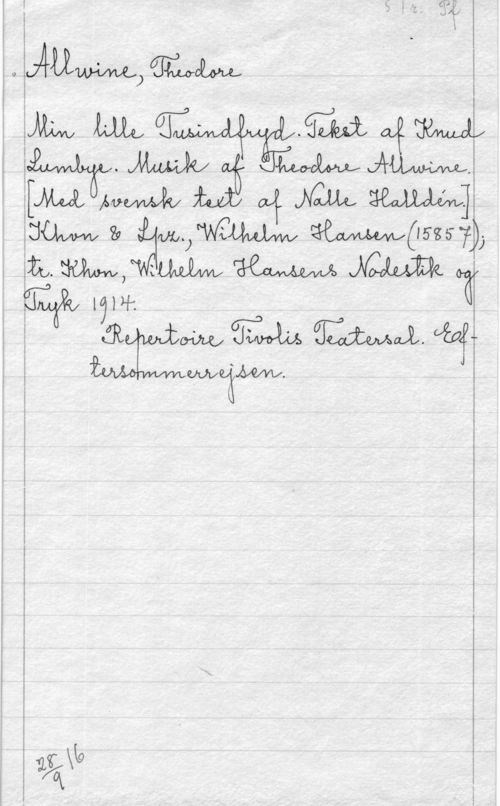 S 1 r. Pf
Allwine, Theodore
Min lille Tusindfryd. Tekst af Knud
Lumbye. Musik af Theodore Allwine.
[Med svensk text af Nalle Halldén.]
Khvn & Lpz., Wilhelm Hansen (15857);
tr. Khvn, Wilhelm Hansens Nodestik og
Tryk 1914.
Repertoire Tivolis Teatersal. Ef-
tersommerrejsen.
28/9 16